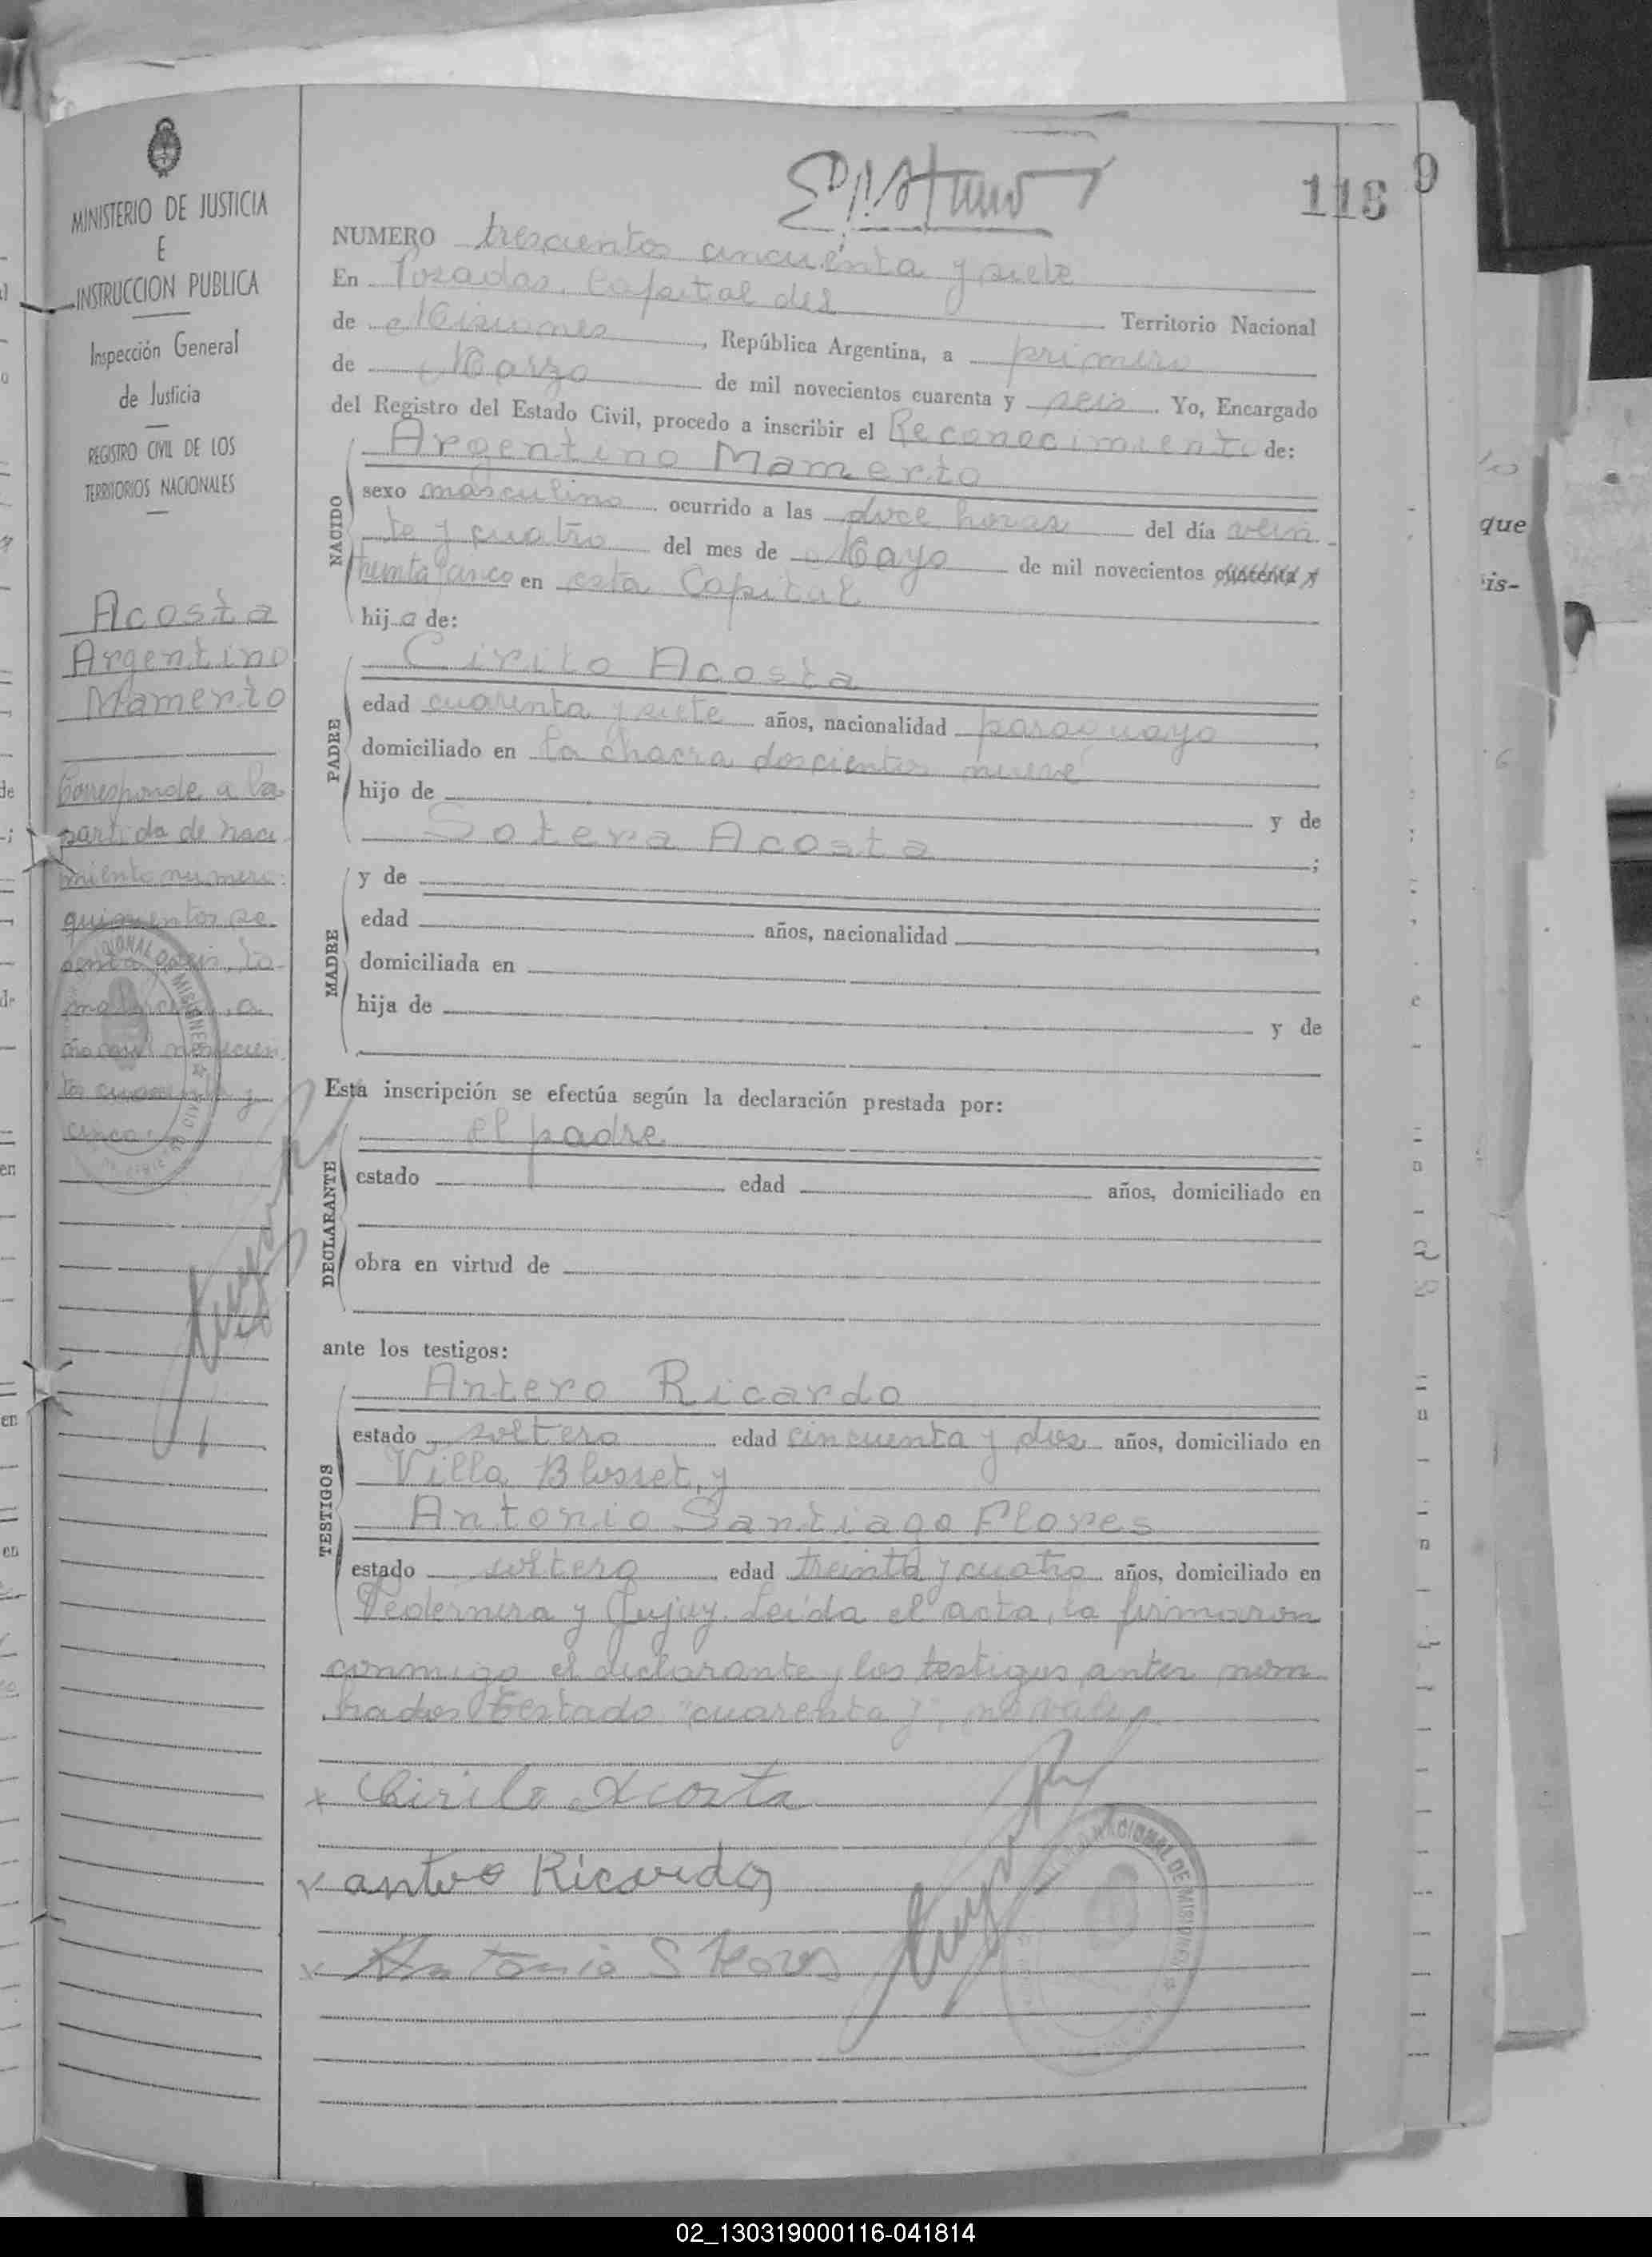 118
9
MINISTERIO DE JUSTICIA
E
INSTRUCCION PUBLICA
Inspección General
de Justicia
REGISTRO CIVIL DE LOS
TERRITORIOS NACIONALES
Acosta
Argentino
Mamerto
Corresponde a la
partida de naci
miento numero
quinientos se
senta y seis, to
mo, a
ño mil novecien
tos cuarenta y
cinco.
NUMERO trescientos cincuenta y siete
En Posadas, Capital del Territorio Nacional
de Misiones, República Argentina, a primero
de Marzo de mil novecientos cuarenta y seis. Yo, Encargado
del Registro del Estado Civil, procedo a inscribir el Reconocimiento de:
NACIDO
Argentino Mamerto
sexo masculino ocurrido a las doce horas del día vein
te y cuatro del mes de Mayo de mil novecientos cuarenta y
treinta cinco en esta Capital
hijo de:
PADRE
Cirilo Acosta
edad cuarenta y siete años, nacionalidad paraguayo,
domiciliado en la chacra doscientos nueve
hijo de y de
Sotera Acosta;
MADRE
y de
edad años, nacionalidad,
domiciliada en
hija de y de
Esta inscripción se efectúa según la declaración prestada por:
DECLARANTE
el padre
estado edad años, domiciliado en
obra en virtud de
ante los testigos:
TESTIGOS
Antero Ricardo
estado soltero edad cincuenta y dos años, domiciliado en
Villa Blosset, y
Antonio Santiago Flores
estado soltero edad treinta y cuatro años, domiciliado en
Pedernera y Jujuy. Leída el acta, la firmaron
conmigo el declarante y los testigos antes nom
brados Testado "cuarenta y", no vale
x Cirilo Acosta
x antero Ricardo
x Antonio S Flores
que
is-
02_130319000116-041814